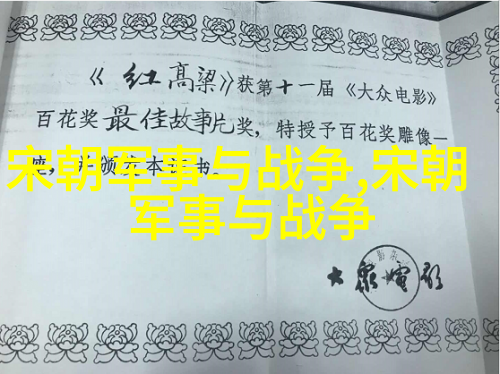 《红高粱》获第十一届《大众电影》
百花奖最佳故事片奖，特授予百花奖雕像一
座，并颁发本证书。
宋朝军事与战争,宋朝
军事与战争
大众电影